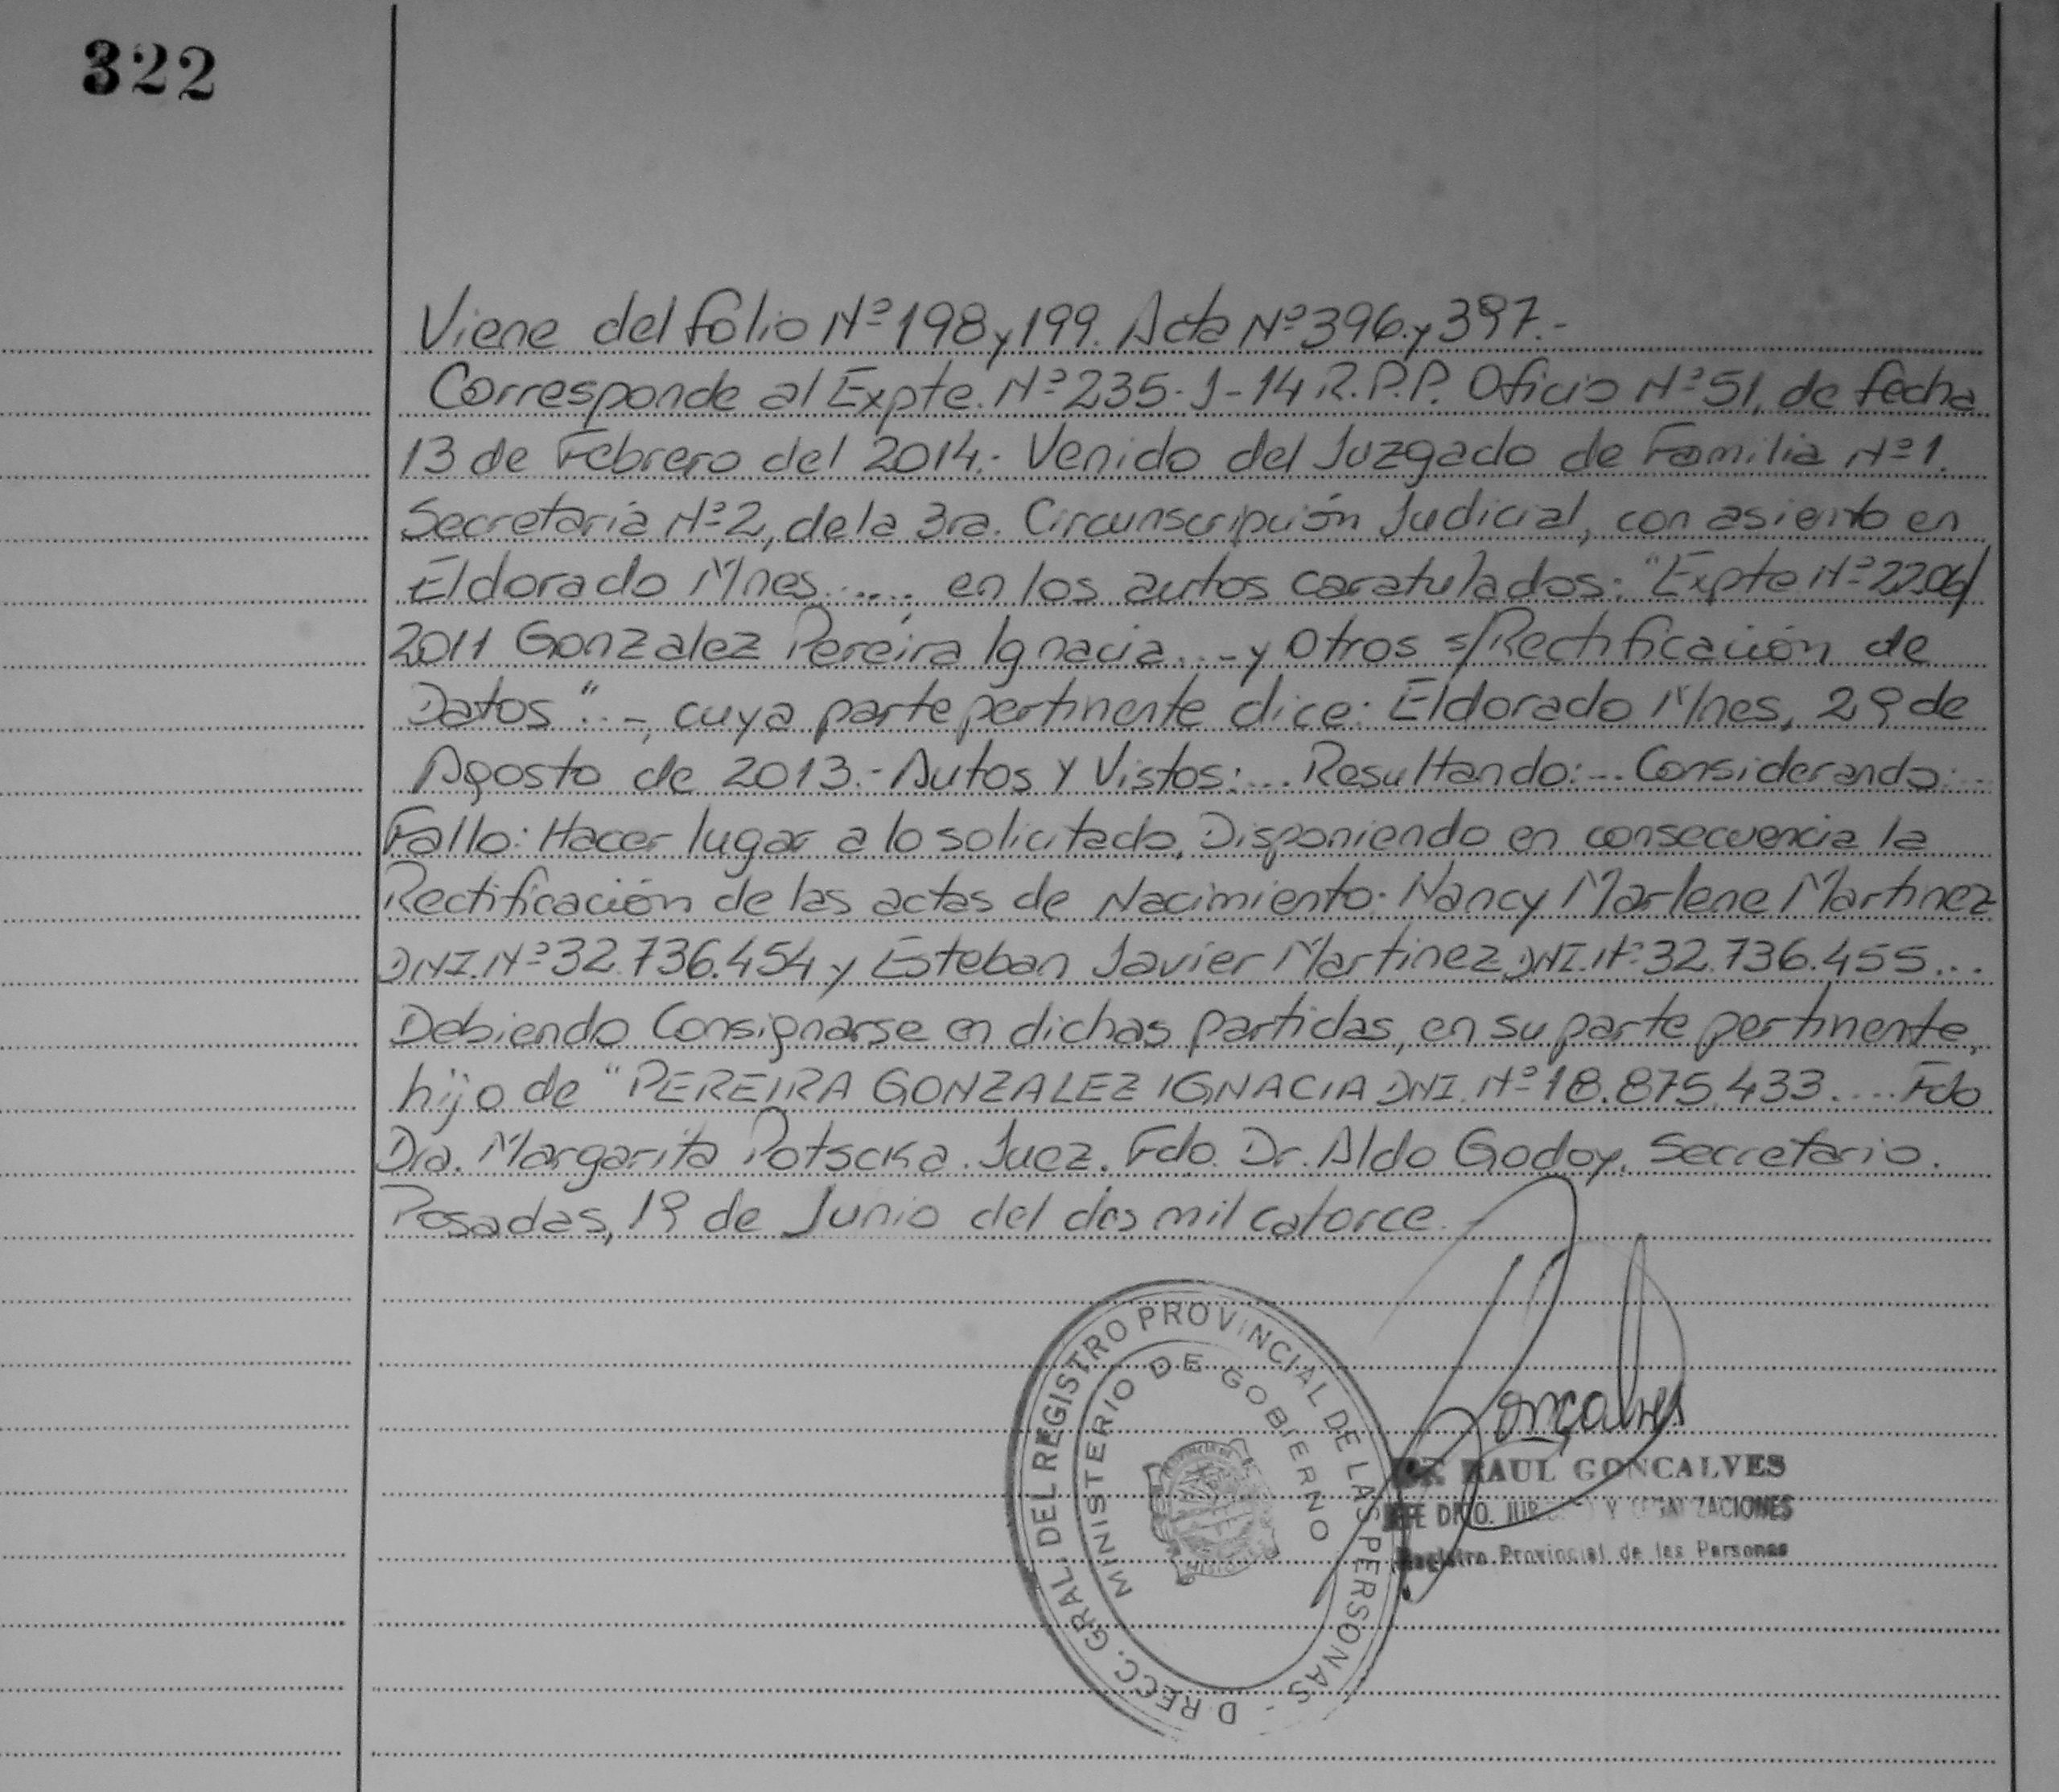 322
Viene del folio Nº 198 y 199. Acta Nº 396 y 397.-
Corresponde al Expte. Nº 235-J-14 R.P.P. Oficio Nº 51, de fecha
13 de Febrero del 2014.- Venido del Juzgado de Familia Nº 1.
Secretaria Nº 2, de la 3ra. Circunscripción Judicial, con asiento en
Eldorado Mnes....., en los autos caratulados: "Expte Nº 2206/
2011 Gonzalez Pereira Ignacia...- y Otros s/Rectificación de
Datos"..-, cuya parte pertinente dice: Eldorado Mnes, 29 de
Agosto de 2013.- Autos Y Vistos:... Resultando:... Considerando:...
Fallo: Hacer lugar a lo solicitado, Disponiendo en consecuencia la
Rectificación de las actas de Nacimiento: Nancy Marlene Martinez
DNI. Nº 32.736.454 y Esteban Javier Martinez DNI. Nº 32.736.455...
Debiendo Consignarse en dichas partidas, en su parte pertinente,
hijo de "PEREIRA GONZALEZ IGNACIA DNI. Nº 18.875.433.... Fdo
Dra. Margarita Potscka. Juez. Fdo. Dr. Aldo Godoy. Secretario.
Posadas, 19 de Junio del dos mil catorce.
DIRECC. GRAL. DEL REGISTRO PROVINCIAL DE LAS PERSONAS -
MINISTERIO DE GOBIERNO
Gonçalves
RAUL GONCALVES
JEFE DPTO. Y
Registro Provincial de las Personas